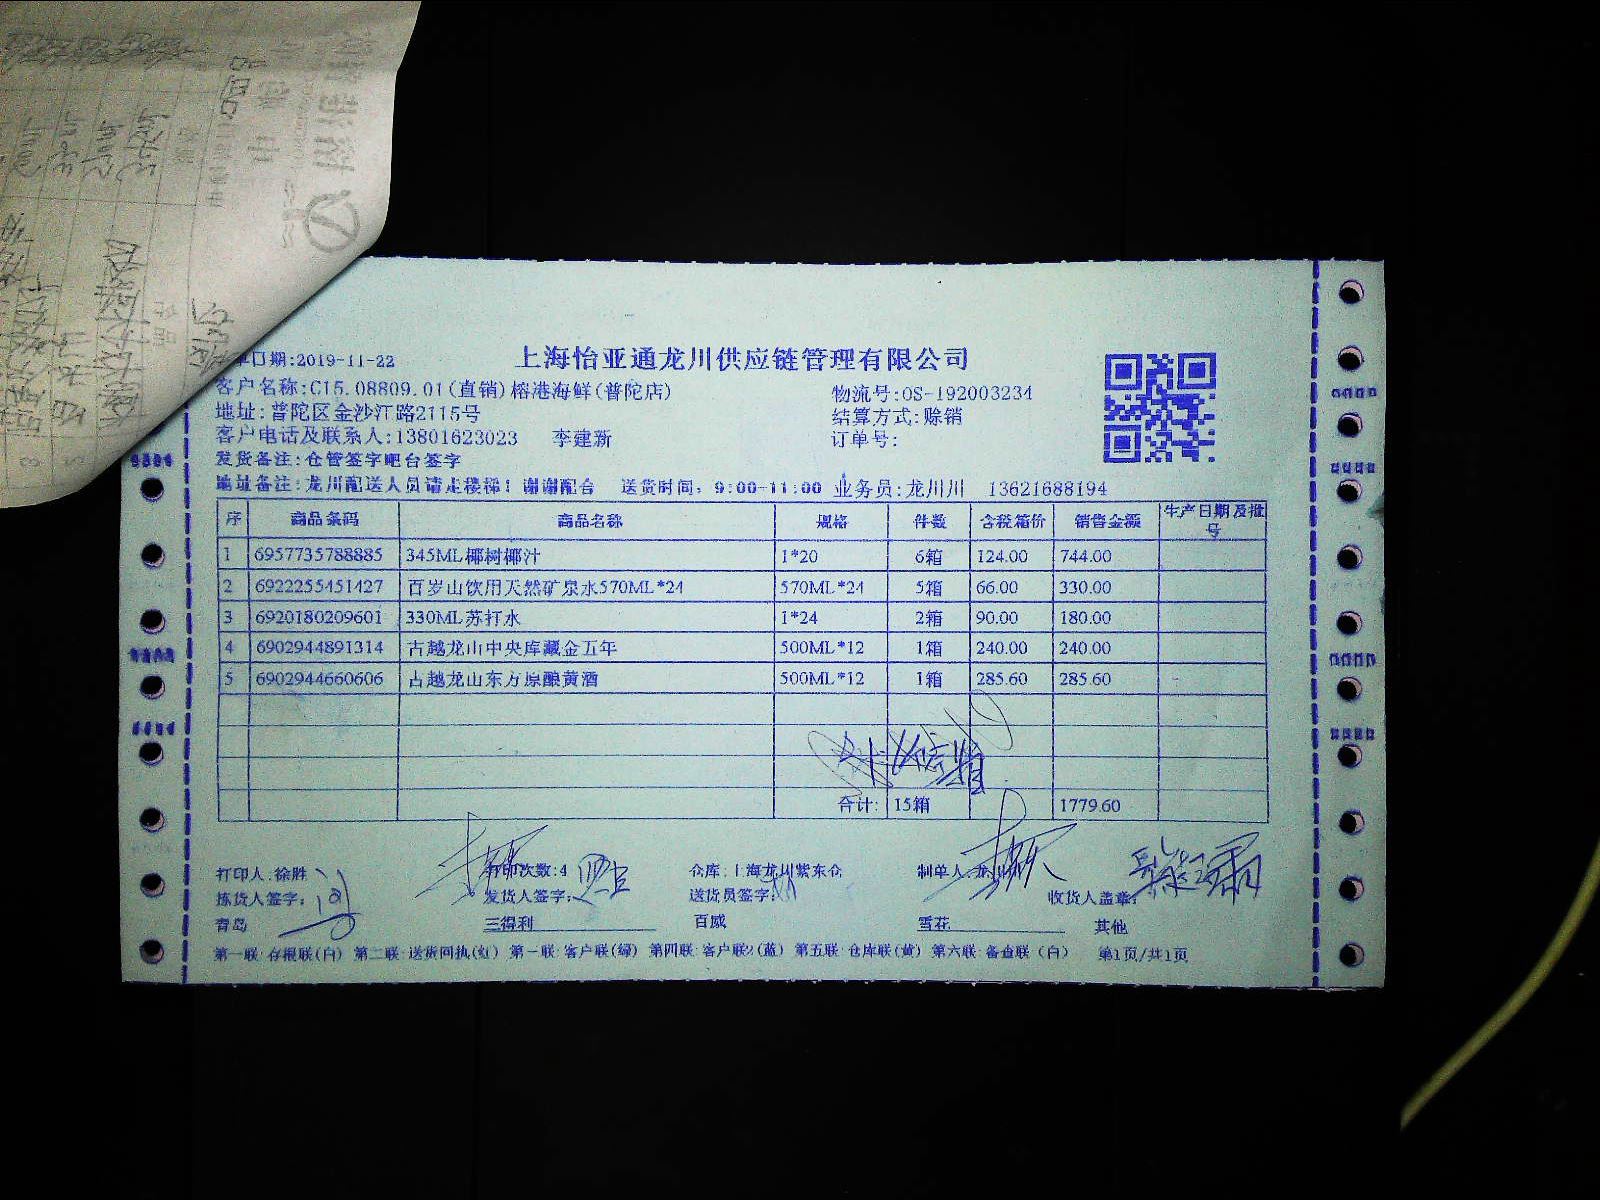 单日期:2019-11-22 上海怡亚通龙川供应链管理有限公司
客户名称:C15.08809.01(直销)榕港海鲜(普陀店) 物流号:OS-192003234
地址:普陀区金沙江路2115号 结算方式:赊销
客户电话及联系人:13801623023 李建新 订单号:
发货备注:仓管签字吧台签字
地址备注:龙川配送人员请走楼梯!谢谢配合 送货时间:9:00-11:00 业务员:龙川川 13621688194
序 商品条码 商品名称 规格 件数 含税箱价 销售金额 生产日期及批号
1 6957735788885 345ML椰树椰汁 1*20 6箱 124.00 744.00
2 6922255451427 百岁山饮用天然矿泉水570ML*24 570ML*24 5箱 66.00 330.00
3 6920180209601 330ML苏打水 1*24 2箱 90.00 180.00
4 6902944891314 古越龙山中央库藏金五年 500ML*12 1箱 240.00 240.00
5 6902944660606 古越龙山东方原酿黄酒 500ML*12 1箱 285.60 285.60
合计: 15箱 1779.60
打印人:徐胜 打印次数:4 仓库:上海龙川紫东仓 制单人:龙川
拣货人签字: 发货人签字: 送货员签字: 收货人盖章:
青岛 三得利 百威 雪花 其他
第一联:存根联(白) 第二联:送货回执(红) 第一联:客户联(绿) 第四联:客户联2(蓝) 第五联:仓库联(黄) 第六联:备查联(白) 第1页/共1页